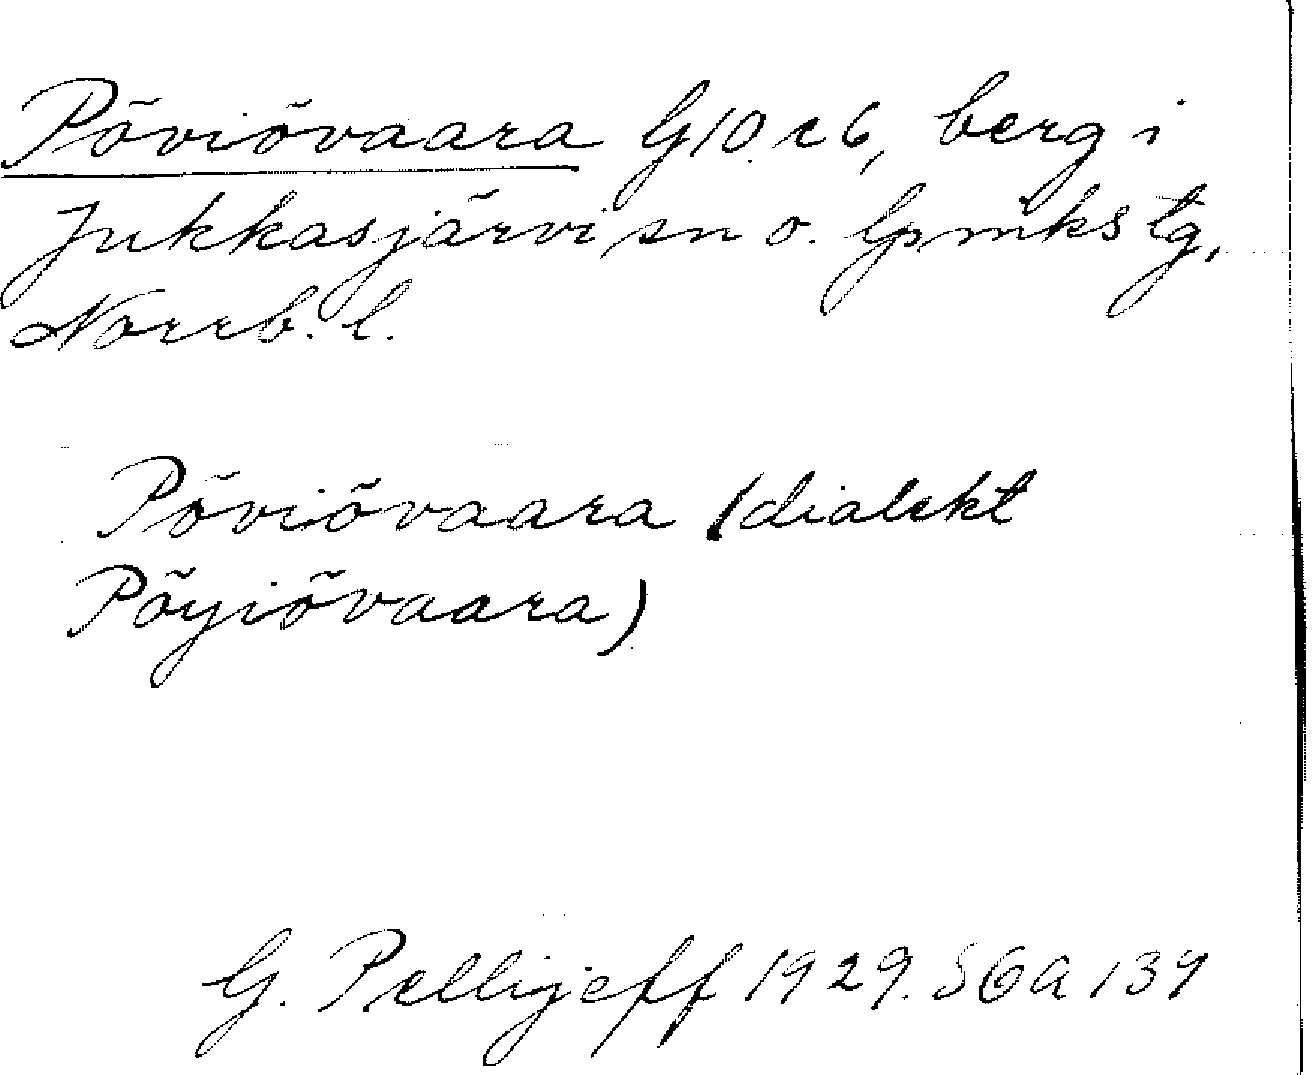 Pöviövaara G10 c6, berg i
Jukkasjärvi sn o. lpmks tg,
Norrb. l.
Pöviövaara (dialekt
Pöyiövaara)
G. Pellijeff 1929. SGA 139